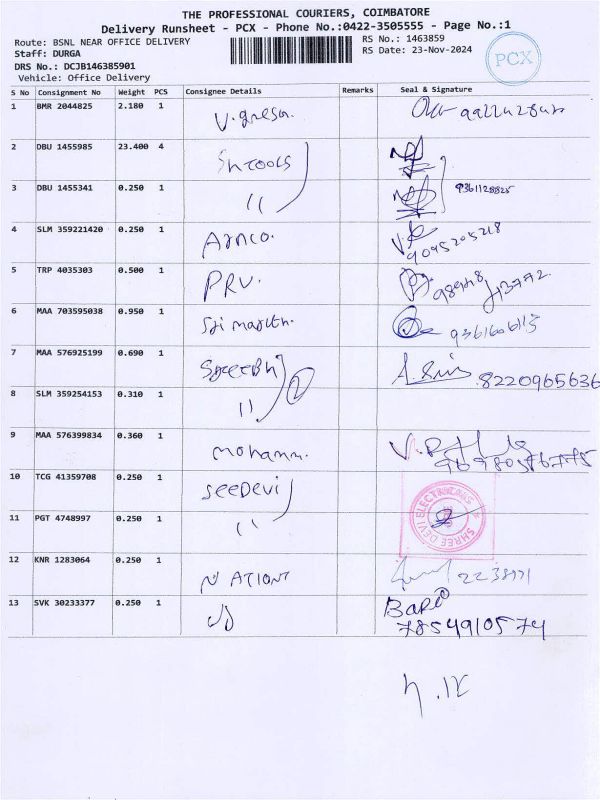 THE PROFESSIONAL COURIERS, COIMBATORE
Delivery Runsheet - PCX - Phone No.:0422-3505555 - Page No.:1
Route: BSNL NEAR OFFICE DELIVERY
RS No.: 1463859
Staff: DURGA
RS Date: 23-Nov-2024
DRS No.: DCJB146385901
Vehicle: Office Delivery
PCX
S No Consignment No Weight PCS Consignee Details Remarks Seal & Signature
1 BMR 2044825 2.180 1
2 DBU 1455985 23.400 4
3 DBU 1455341 0.250 1 " 9361128825
4 SLM 359221420 0.250 1 9095205218
5 TRP 4035303 0.500 1 PRV.
6 MAA 703595038 0.950 1 9361606113
7 MAA 576925199 0.690 1 8220965636
8 SLM 359254153 0.310 1 " 2
9 MAA 576399834 0.360 1 mohamm.
10 TCG 41359708 0.250 1 SeeDevi
SHREE DEVI ELECTRICALS
11 PGT 4748997 0.250 1 "
12 KNR 1283064 0.250 1 NATIONT
13 SVK 30233377 0.250 1
7854910574